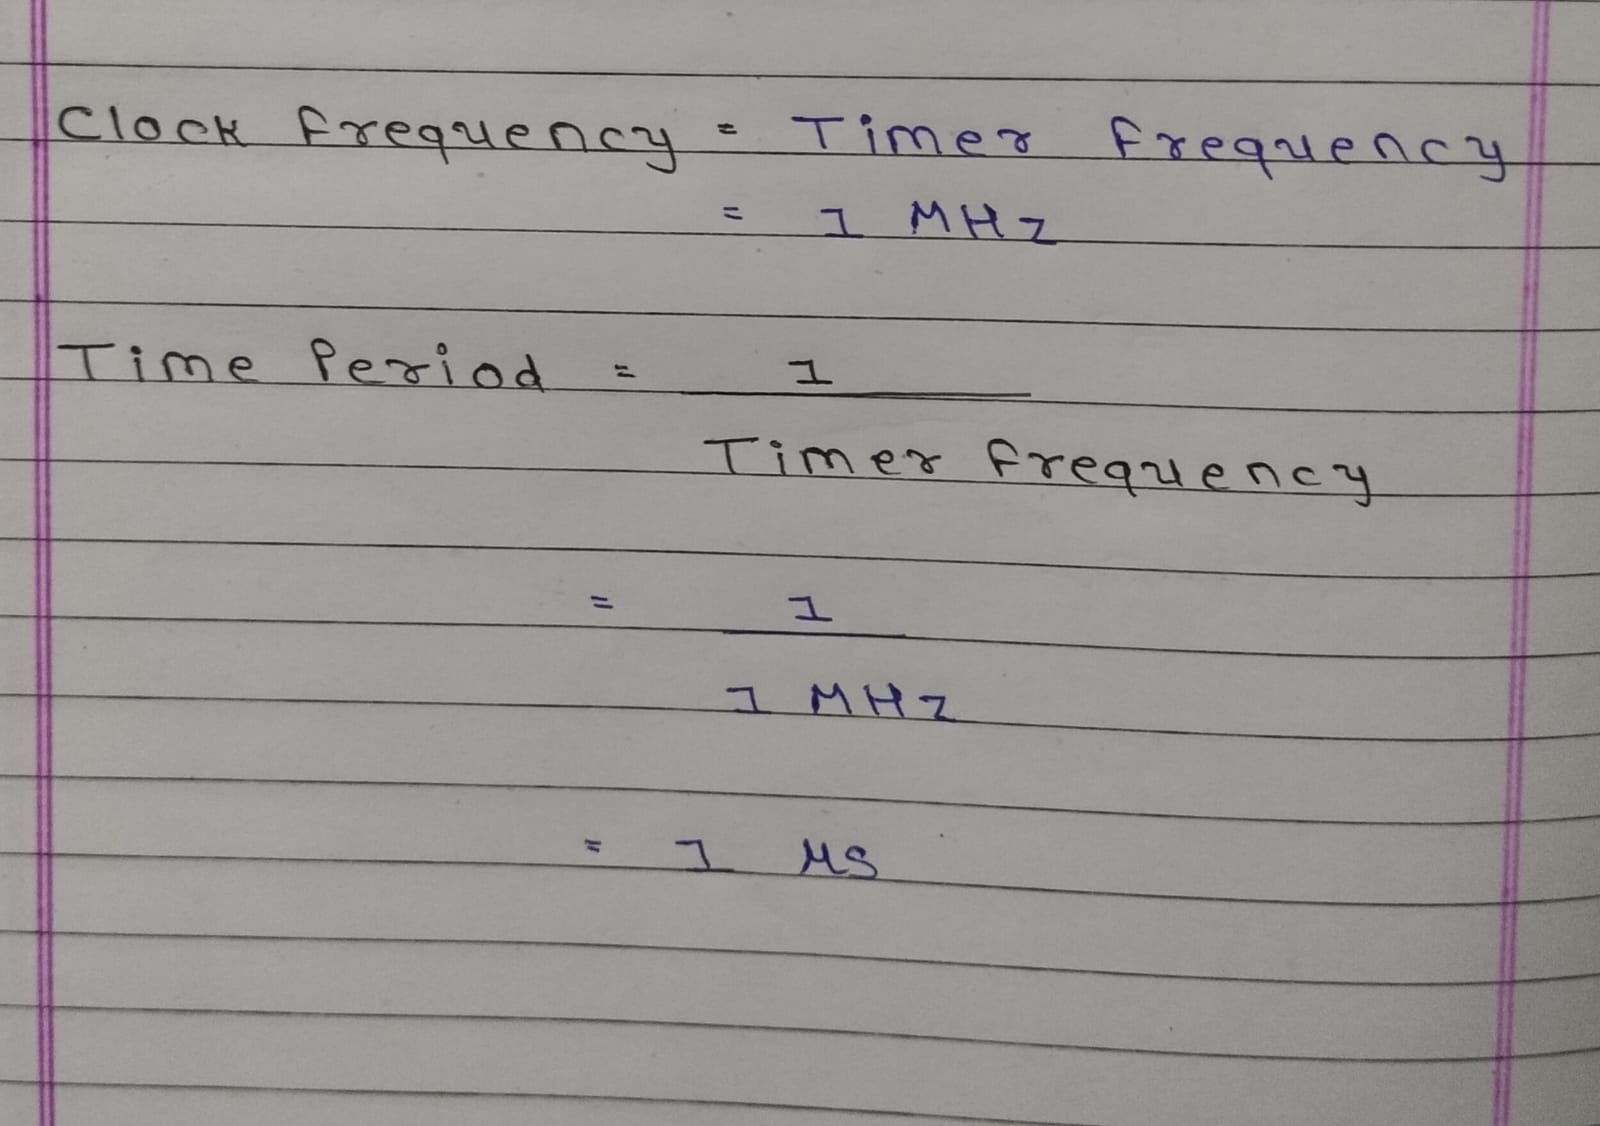 Clock frequency = Timer frequency
= 1 MHz
Time Period = 1
Timer frequency
= 1
1 MHz
= 1 μs